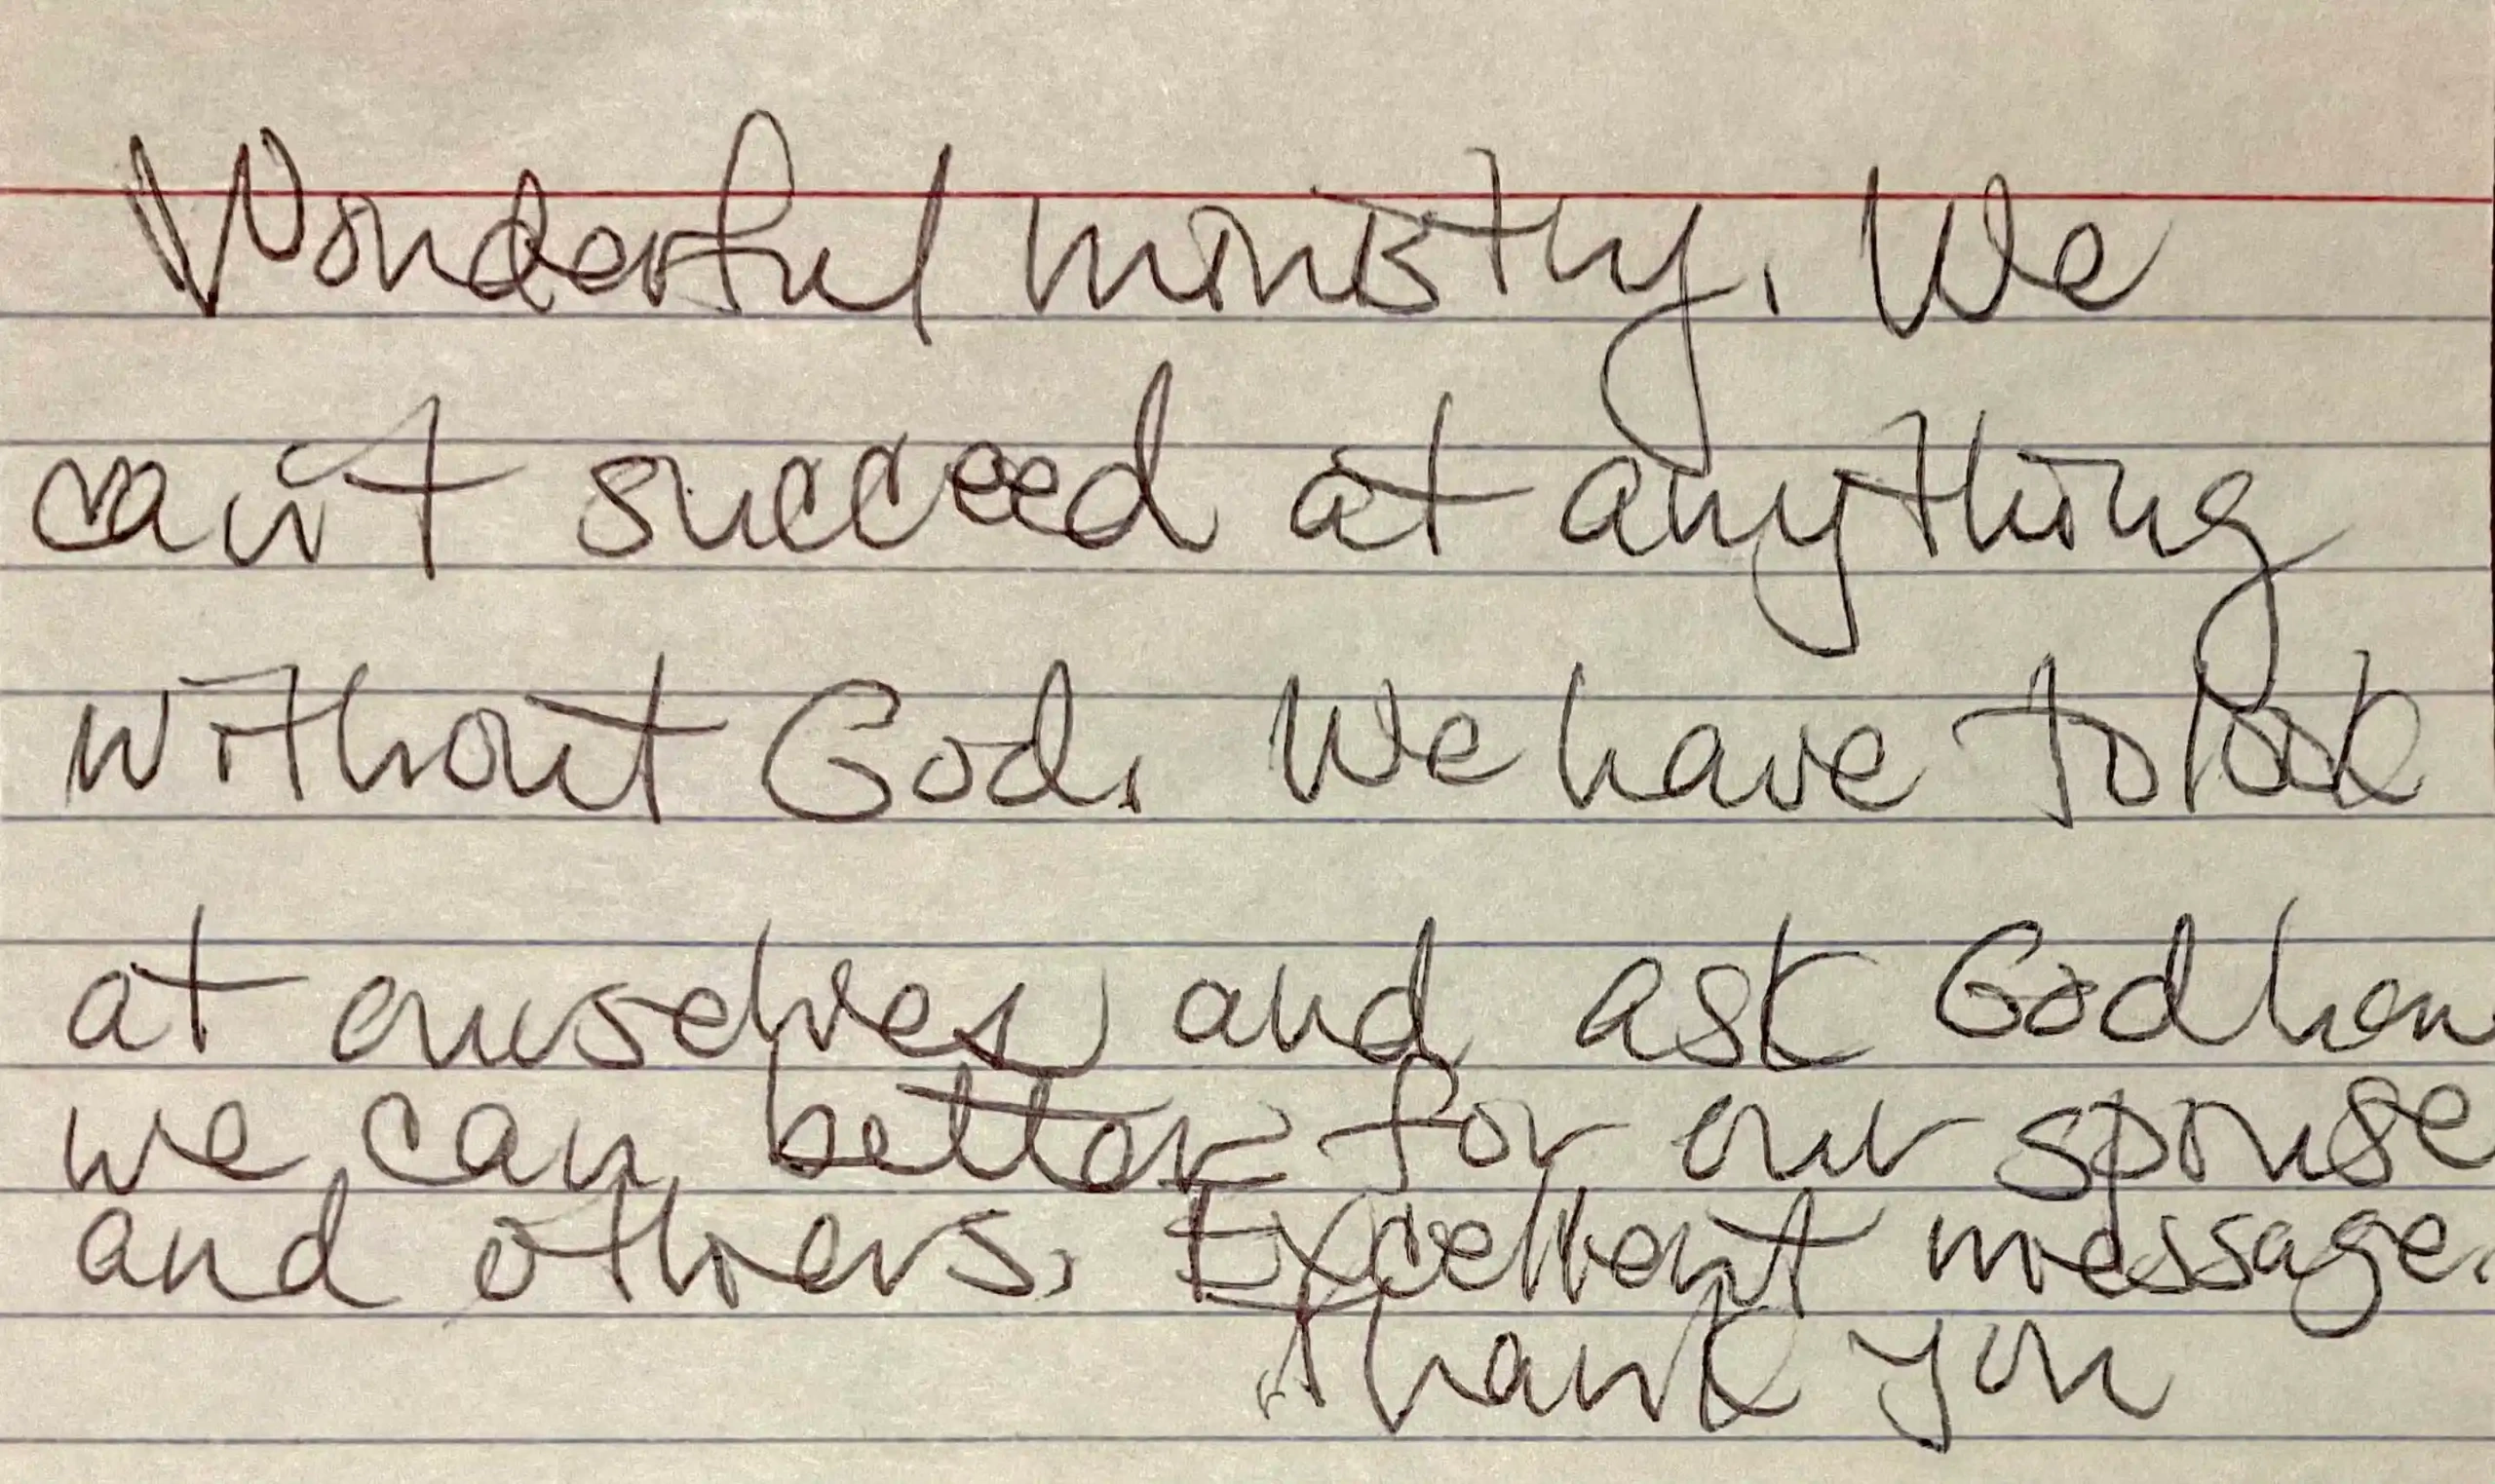 Wonderful ministry. We
can't succeed at anything
without God. We have to look
at ourselves and ask God how
we can better for our spouse
and others. Excellent message.
Thank you